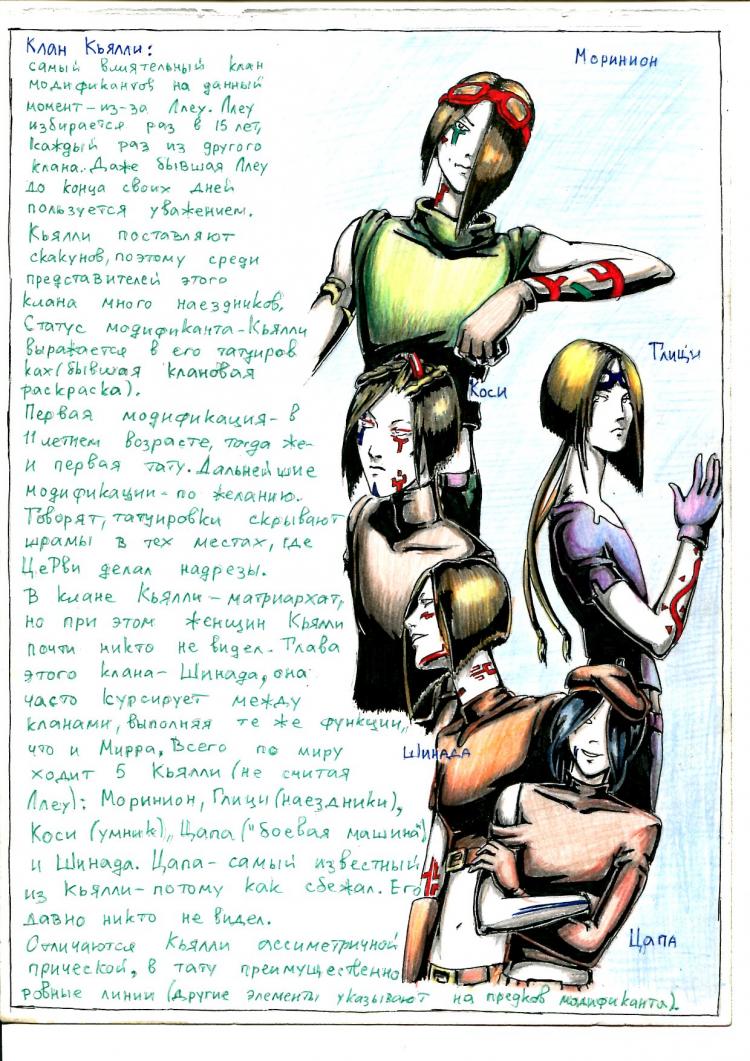 Клан Кьялли:
самый влиятельный клан
модификантов на данный
момент – из-за Ллеу. Ллеу
избирается раз в 15 лет,
каждый раз из другого
клана. Даже бывшая Ллеу
до конца своих дней
пользуется уважением.
Кьялли поставляют
скакунов, поэтому среди
представителей этого
клана много наездников.
Статус модификанта-Кьялли
выражается в его татуиров
ках (бывшая клановая
раскраска).
Первая модификация – в
11 летнем возрасте, тогда же-
и первая тату. Дальнейшие
модификации – по желанию.
Говорят, татуировки скрывают
шрамы в тех местах, где
ЦеРви делал надрезы.
В клане Кьялли – матриархат,
но при этом женщин Кьялли
почти никто не видел. Глава
этого клана – Шинада, она
часто курсирует между
кланами, выполняя те же функции,
что и Мирра. Всего по миру
ходит 5 Кьялли (не считая
Ллеу): Моринион, Глици (наездники),
Коси (умник), Цапа ("боевая машина")
и Шинада. Цапа – самый известный
из Кьялли – потому как сбежал. Его
давно никто не видел.
Отличаются Кьялли ассиметричной
прической, в тату преимущественно
ровные линии (другие элементы указывают на предков модификанта).
Моринион
Глици
Коси
Шинада
Цапа